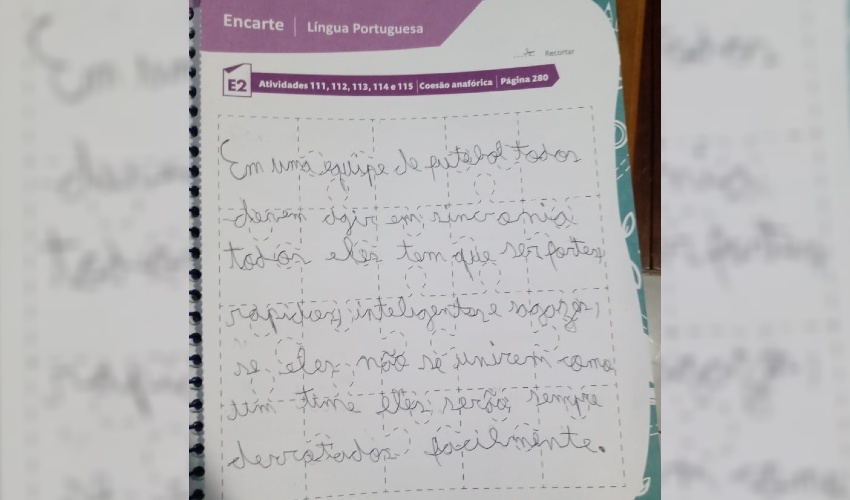 Encarte | Língua Portuguesa
Recortar
E2 Atividades 111, 112, 113, 114 e 115 | Coesão anafórica | Página 280
Em uma equipe de futebol todos
devem agir em sincronia
todos eles tem que ser fortes,
rapides, inteligentes e sagazes,
se eles não se unirem como
um time eles serão sempre
derrotados facilmente.